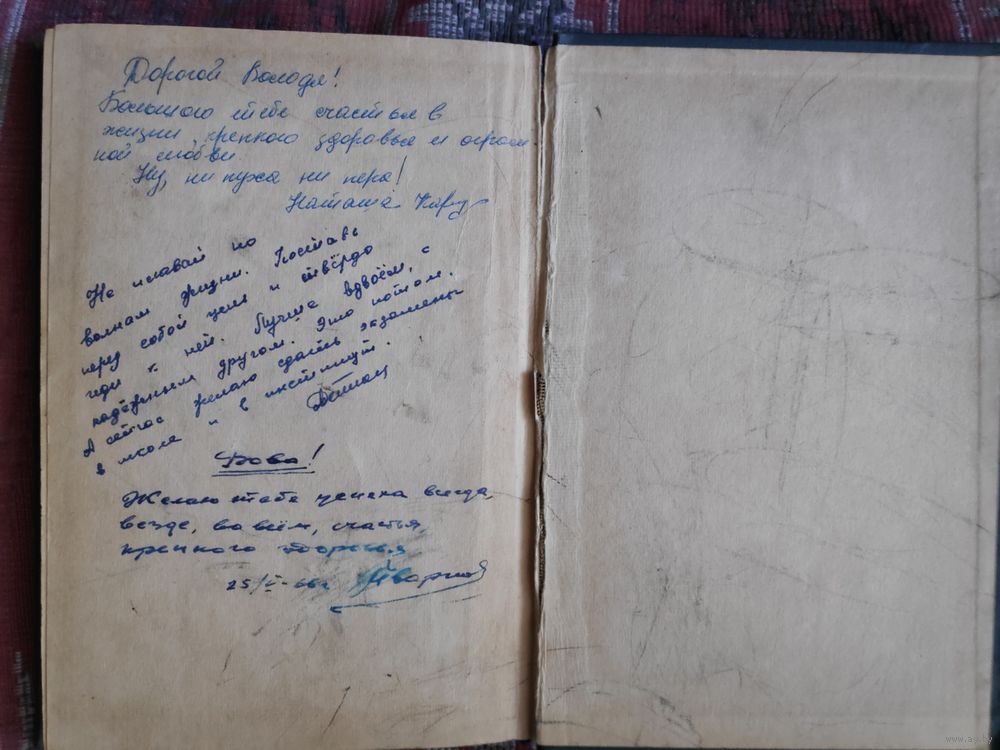 Дорогой Володя!
Большого тебе счастья в
жизни, крепкого здоровья и огром-
ной любви.
Ну, ни пуха ни пера!
Наташа
Не плавай по
волнам жизни. Поставь
перед собой цель и твёрдо
иди к ней. Лучше вдвоём, с
надёжным другом. Это потом.
А сейчас желаю сдать экзамены
в школе и в институт.
Вова!
Желаю тебе успеха всегда,
везде, во всём, счастья,
крепкого здоровья
25/V-66г
www.ay.by